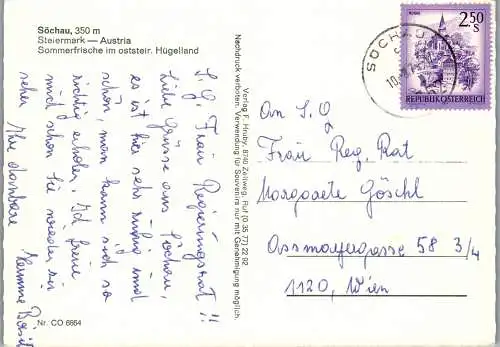 Söchau, 350 m
Steiermark — Austria
Sommerfrische im oststeir. Hügelland
S. g. Frau Regierungsrat!!
Liebe Grüsse aus Söchau,
es ist hier sehr ruhig und
schön, man kann sich so
richtig erholen. Ich freue
mich schon Sie wieder zu
sehen
Ihre dankbare
Nr. CO 6664
Verlag F. Hruby, 8740 Zeltweg, Ruf (0 35 77) 22 92
Nachdruck verboten. Verwendung für Souvenirs nur mit Genehmigung möglich.
SÖCHAU
MURAU
2.50
S
REPUBLIK ÖSTERREICH
An S. g.
Frau Reg. Rat
Margarete Göschl
Assmayergasse 58 3/4
1120, Wien